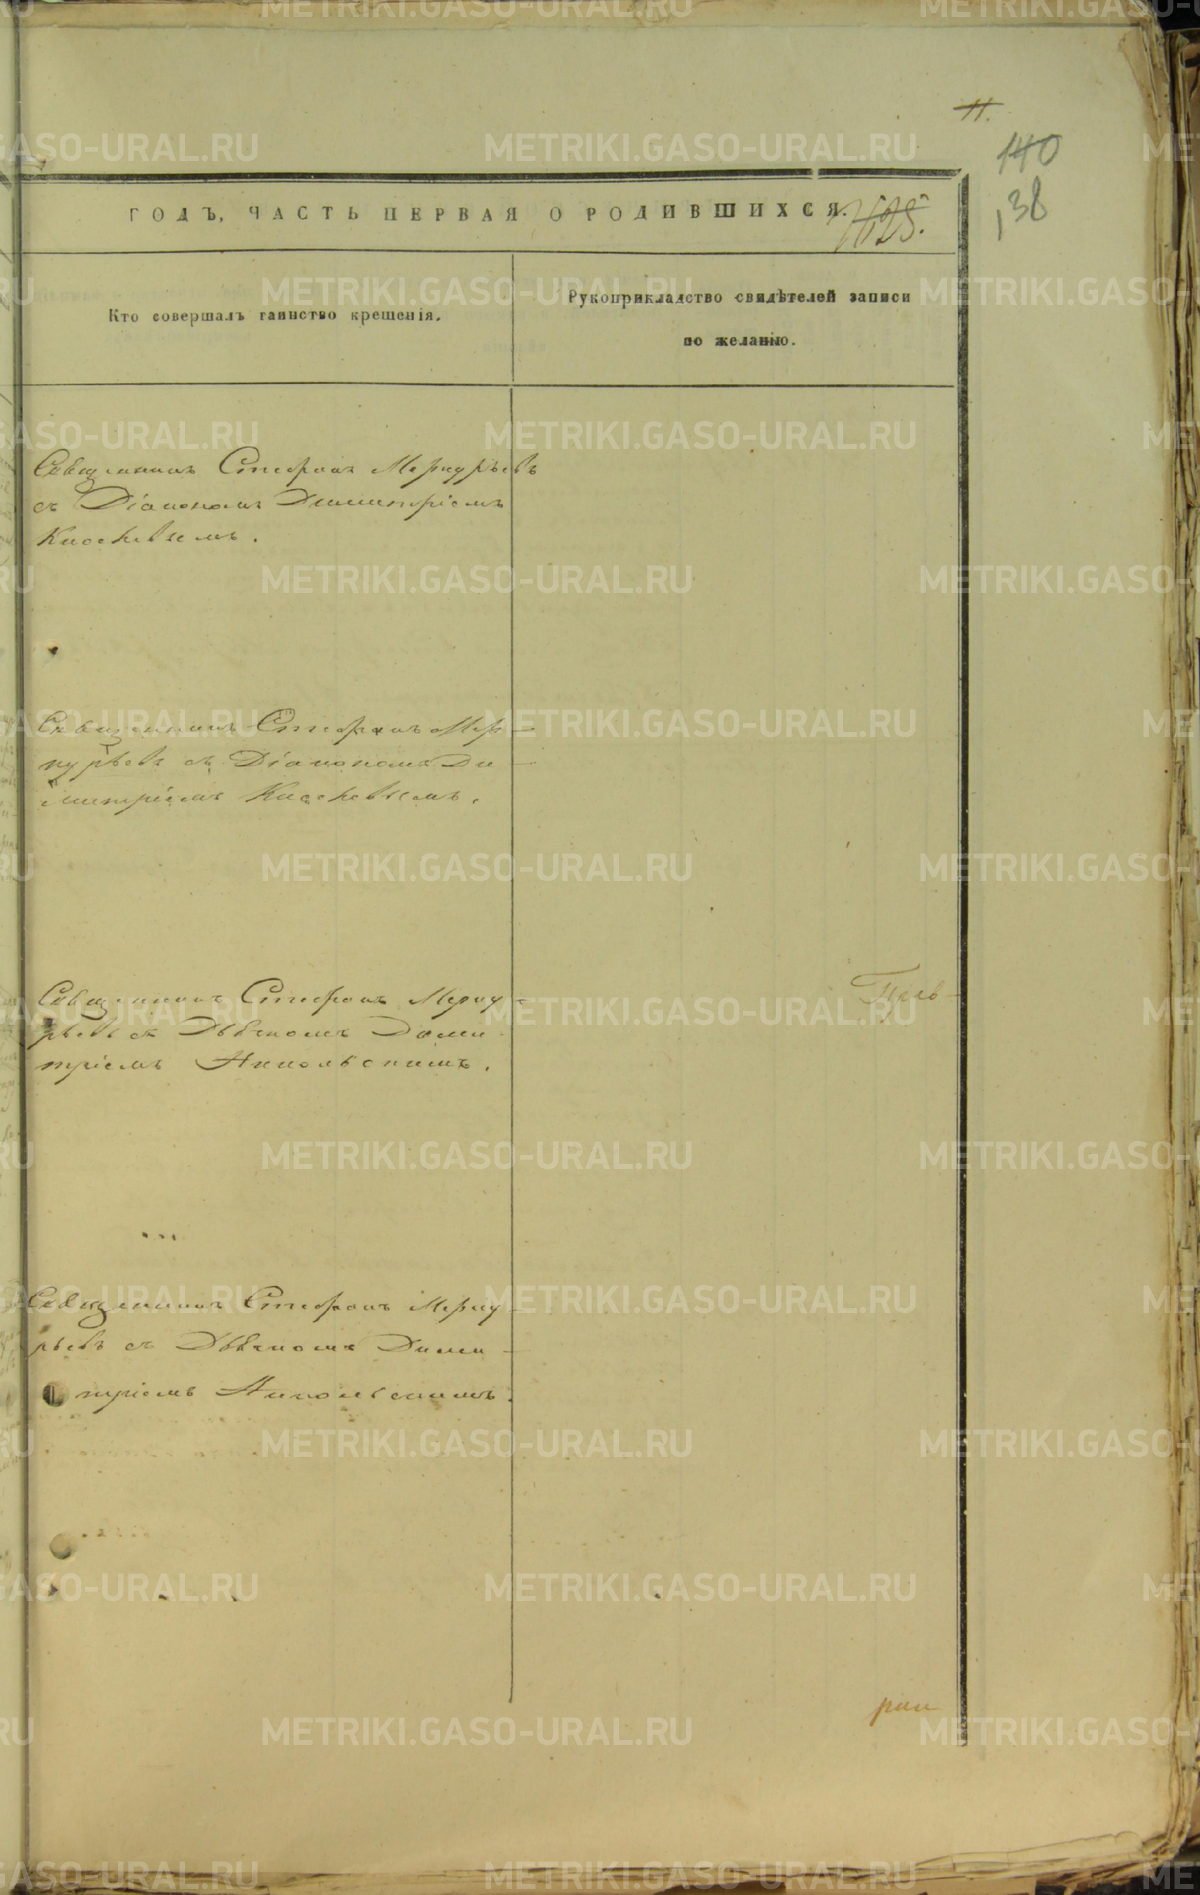 11.
140
138
ГОДЪ, ЧАСТЬ ПЕРВАЯ О РОДИВШИХСЯ.
Кто совершалъ таинство крещенія.
Рукоприкладство свидѣтелей записи
по желанію.
Священникъ Стефанъ Меркурьевъ
съ Діакономъ Димитріемъ
Священникъ Стефанъ Мер-
курьевъ съ Діакономъ Ди-
митріемъ
Священникъ Стефанъ Мерку-
рьевъ съ Дьячкомъ Дими-
тріемъ Никольскимъ.
Священникъ Стефанъ Мерку-
рьевъ съ Дьячкомъ Дими-
тріемъ Никольскимъ.
METRIKI.GASO-URAL.RU